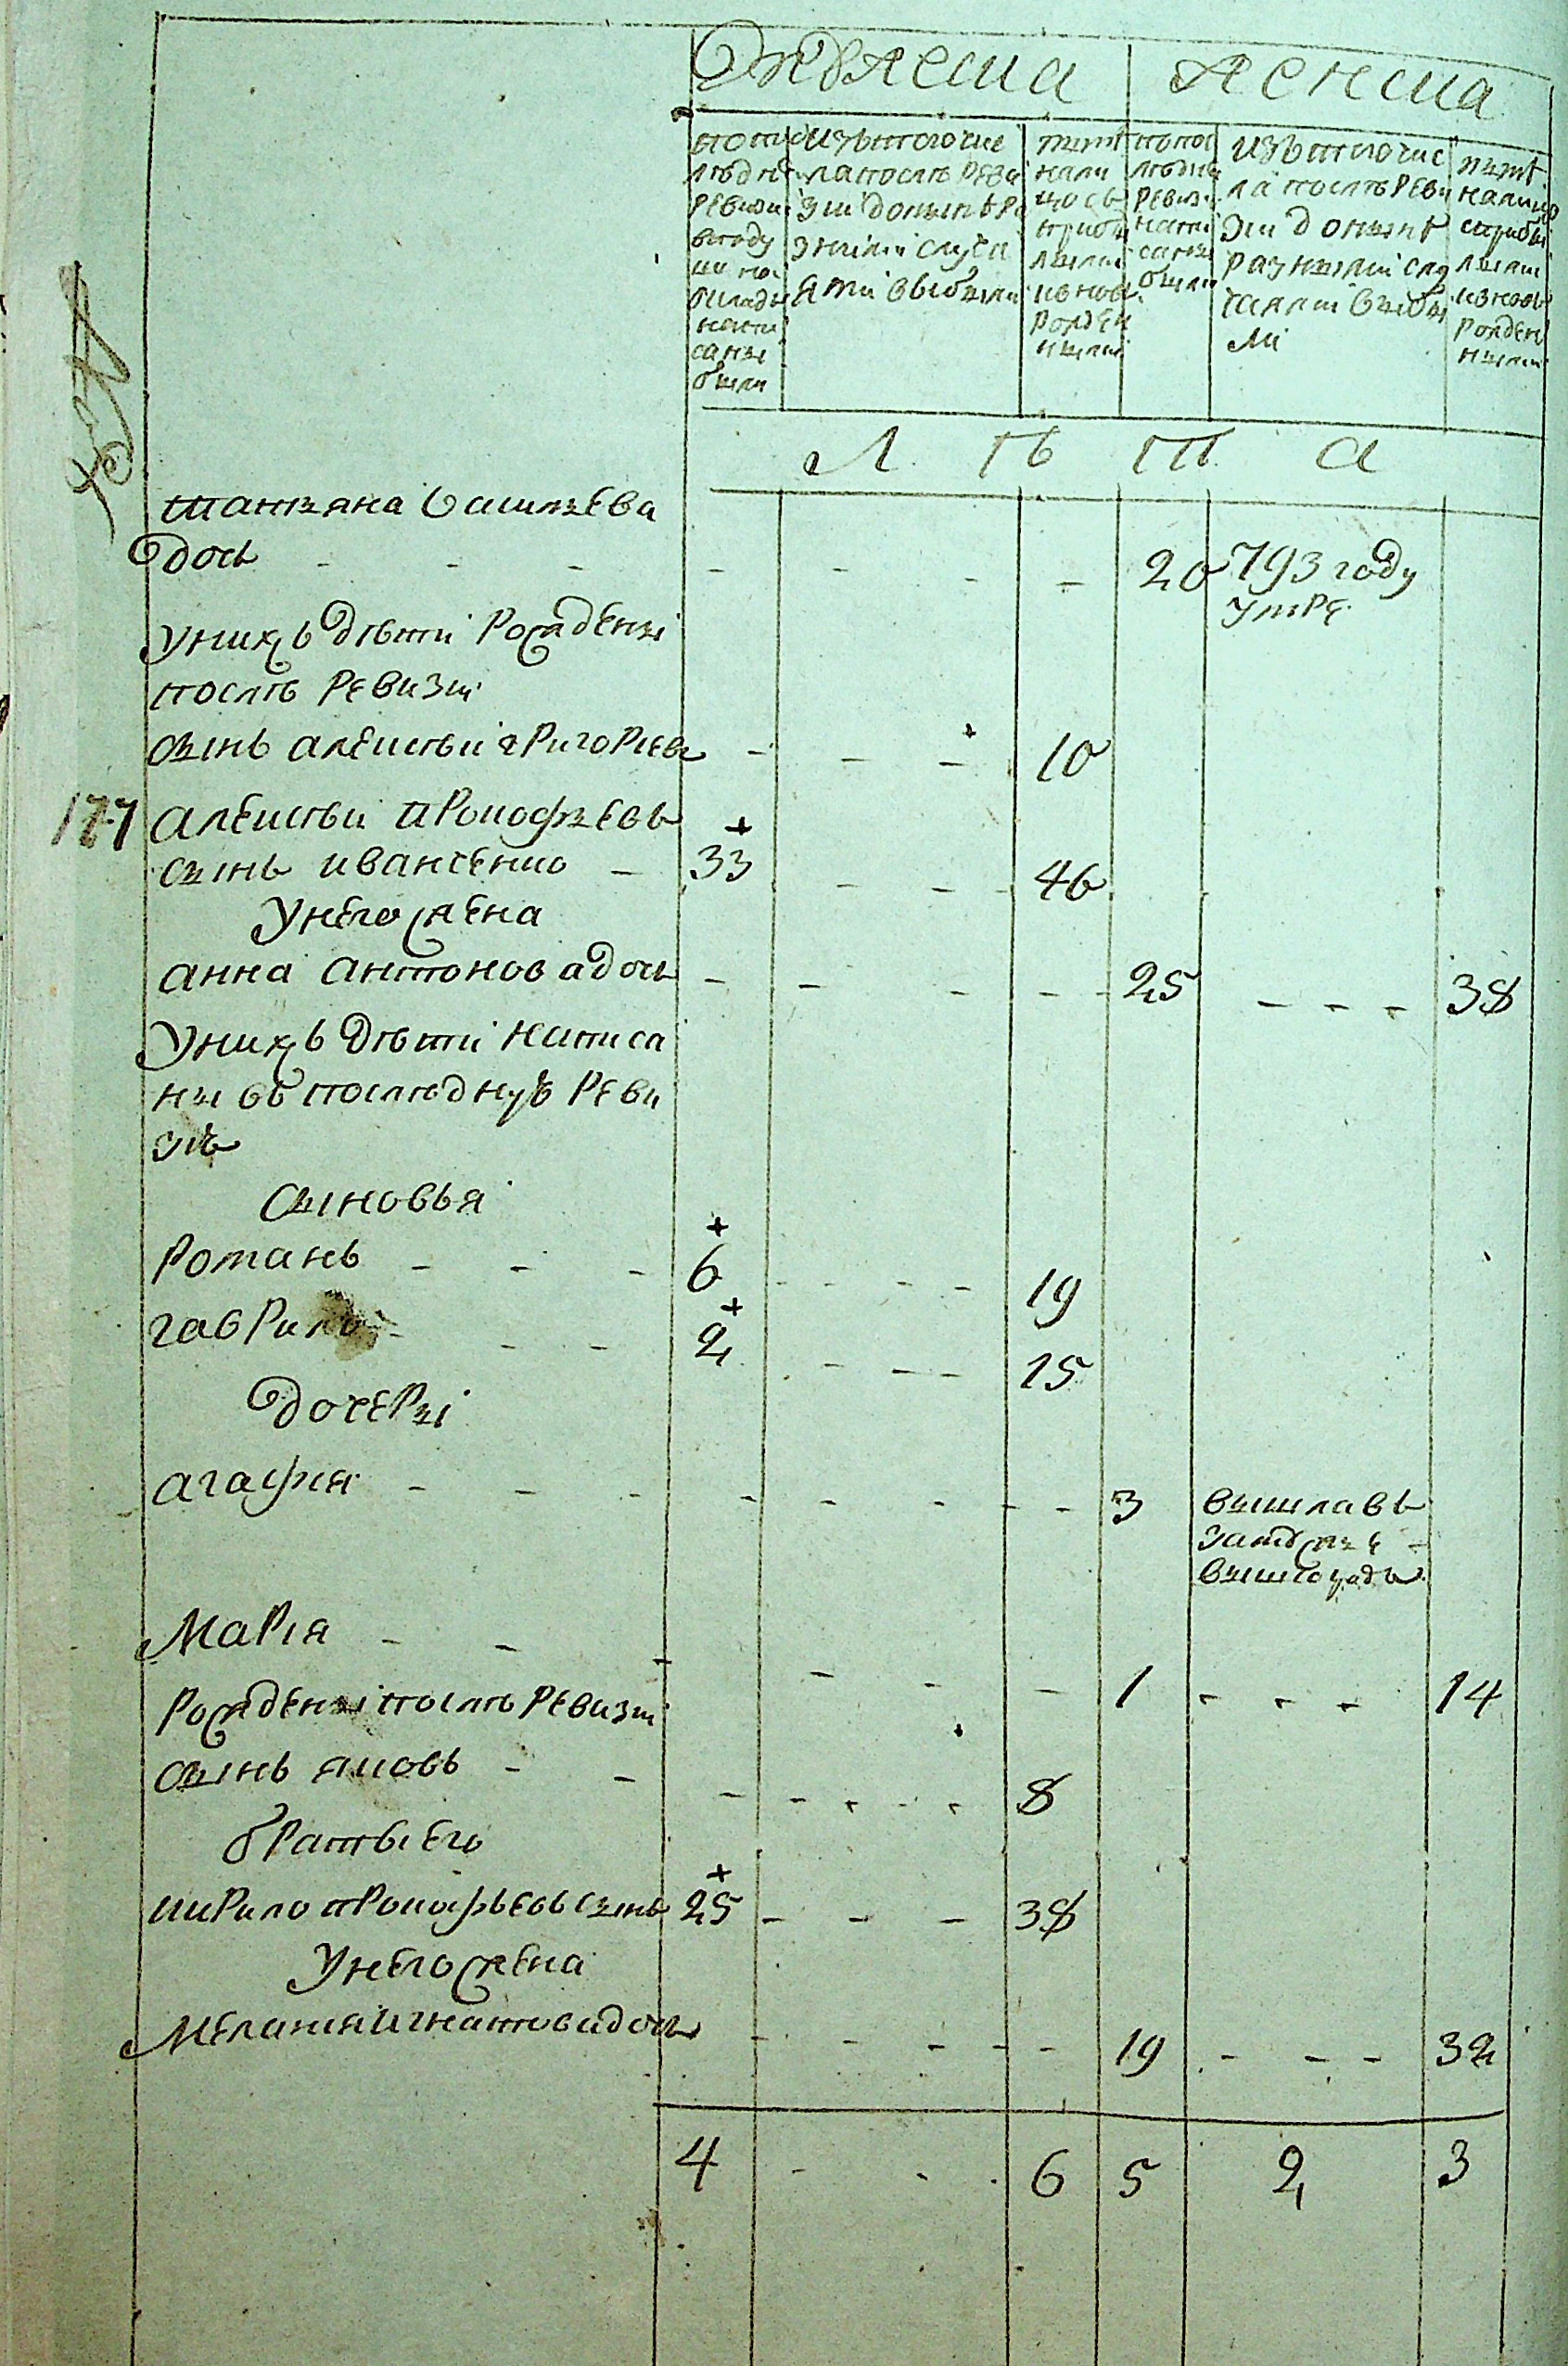 Мужеска женска
по по
следней
ревизии
в году
бывшей
написаны
были
изътогочис
ла послѣ реви
зии доныне ра
зними случа
ями выбыли
ныне
нали
цо съ
прибы
лыми
и вновь
рожден
ными
по пос
ледне
ревизи
напи
саны
были
изъ тогочис
ла послѣ реви
зии доныне
разными слу
чаями выбы
ли
ныне
налицо
съ прибы
лыми
и вновь
рожден
ными
Л ѣ т а
татьяна васильева
дочь - - - - - - - 20 793 году
умре
у нихъ дѣти рожденні
послѣ ревизіи
сынъ алексѣй григорьевъ - - - 10
177 алексѣй прокофьевъ
сынъ иванченко - 33 - - - 46
у него жена
анна антонова дочь - - - - - 25 - - - 38
у нихъ дѣти написа
ны въ последную реви
зію
сыновья
романъ - - - 6 - - - - 19
гаврило - - - 2 - - - - 15
дочерні
агафія - - - - - - - - 3 вышла въ
замужъе -
вышгородъ
марія - - - - - - 1 - - - 14
рожденні послѣ ревизіи
сынъ яковъ - - - - - - - 8
братъ его
кирило прокофьевъ сынъ 25 - - - 38
у него жена
меланія игнатова дочь - - - - - 19 - - - 32
4 - - - 6 5 2 3